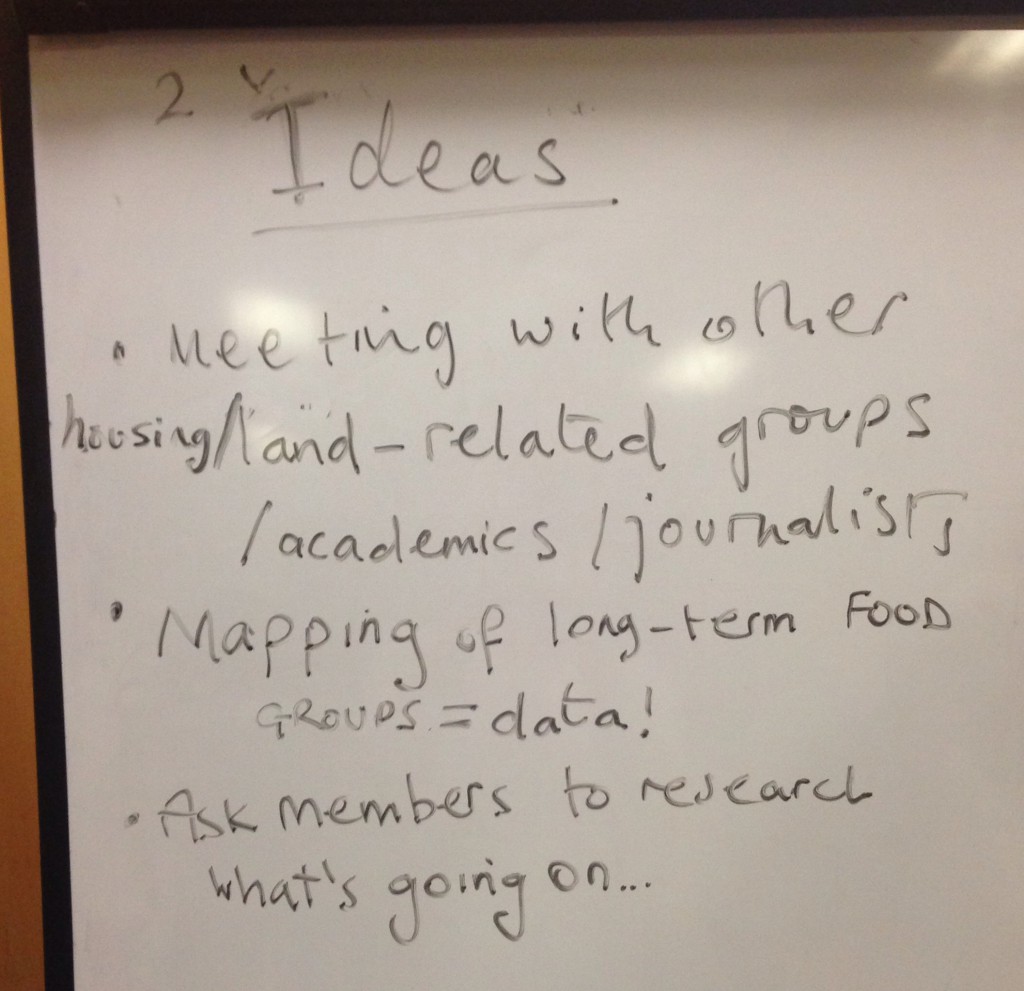 2 Ideas
• Meeting with other
housing/land-related groups
/academics/journalists
• Mapping of long-term FOOD
GROUPS = data!
• Ask members to research
what's going on...